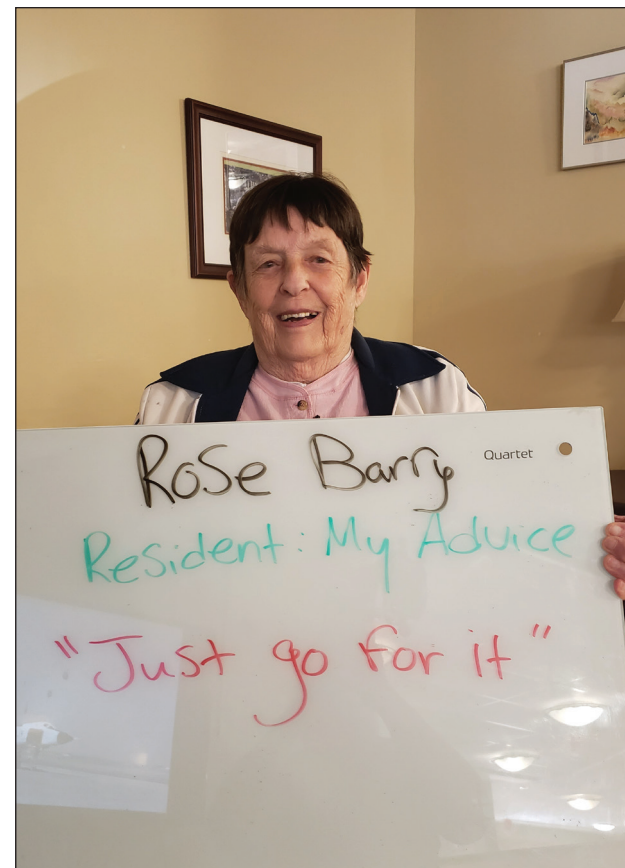 Rose Barry
Quartet
Resident: My Advice
"Just go for it"